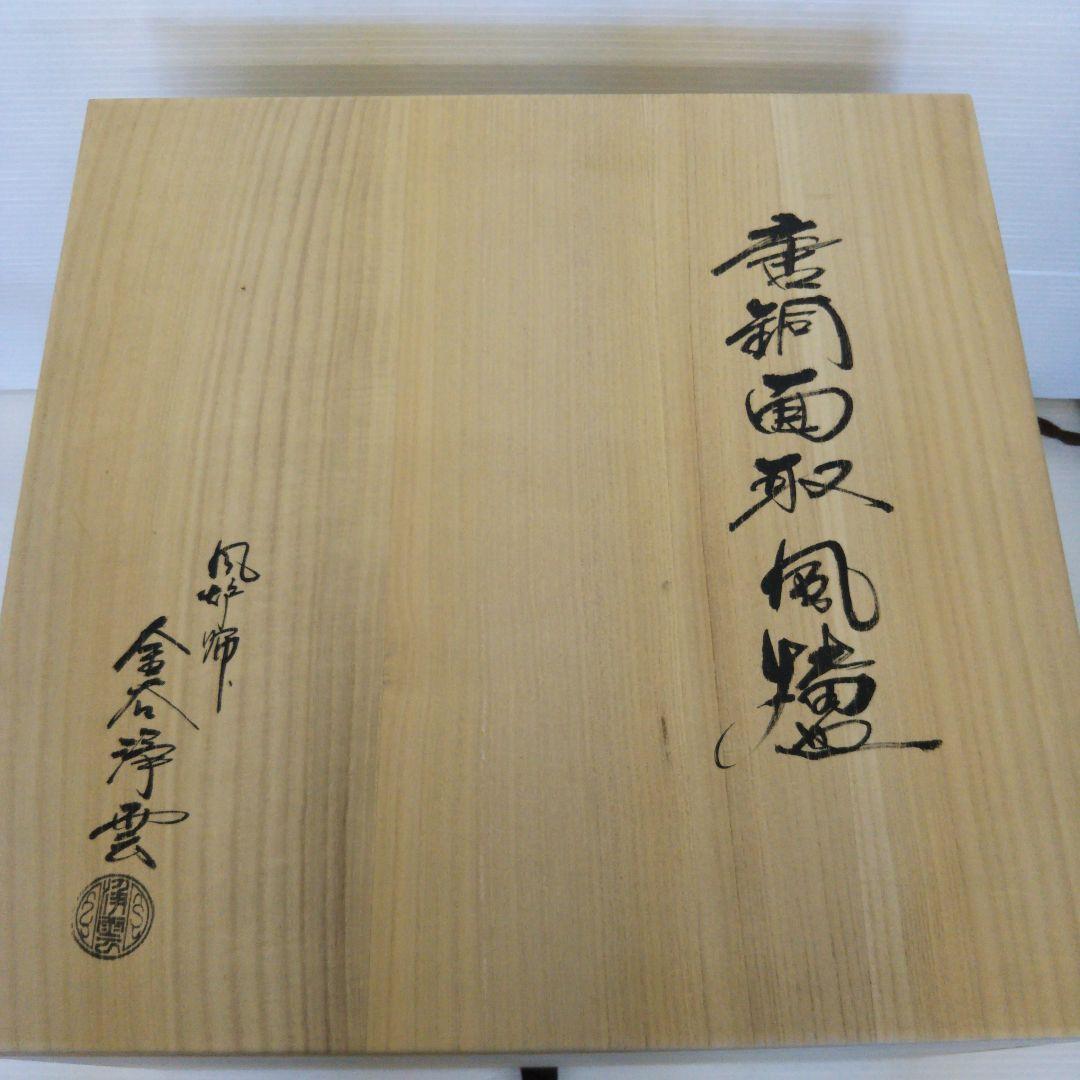 唐銅面取風爐
風炉師
金谷浄雲
浄雲